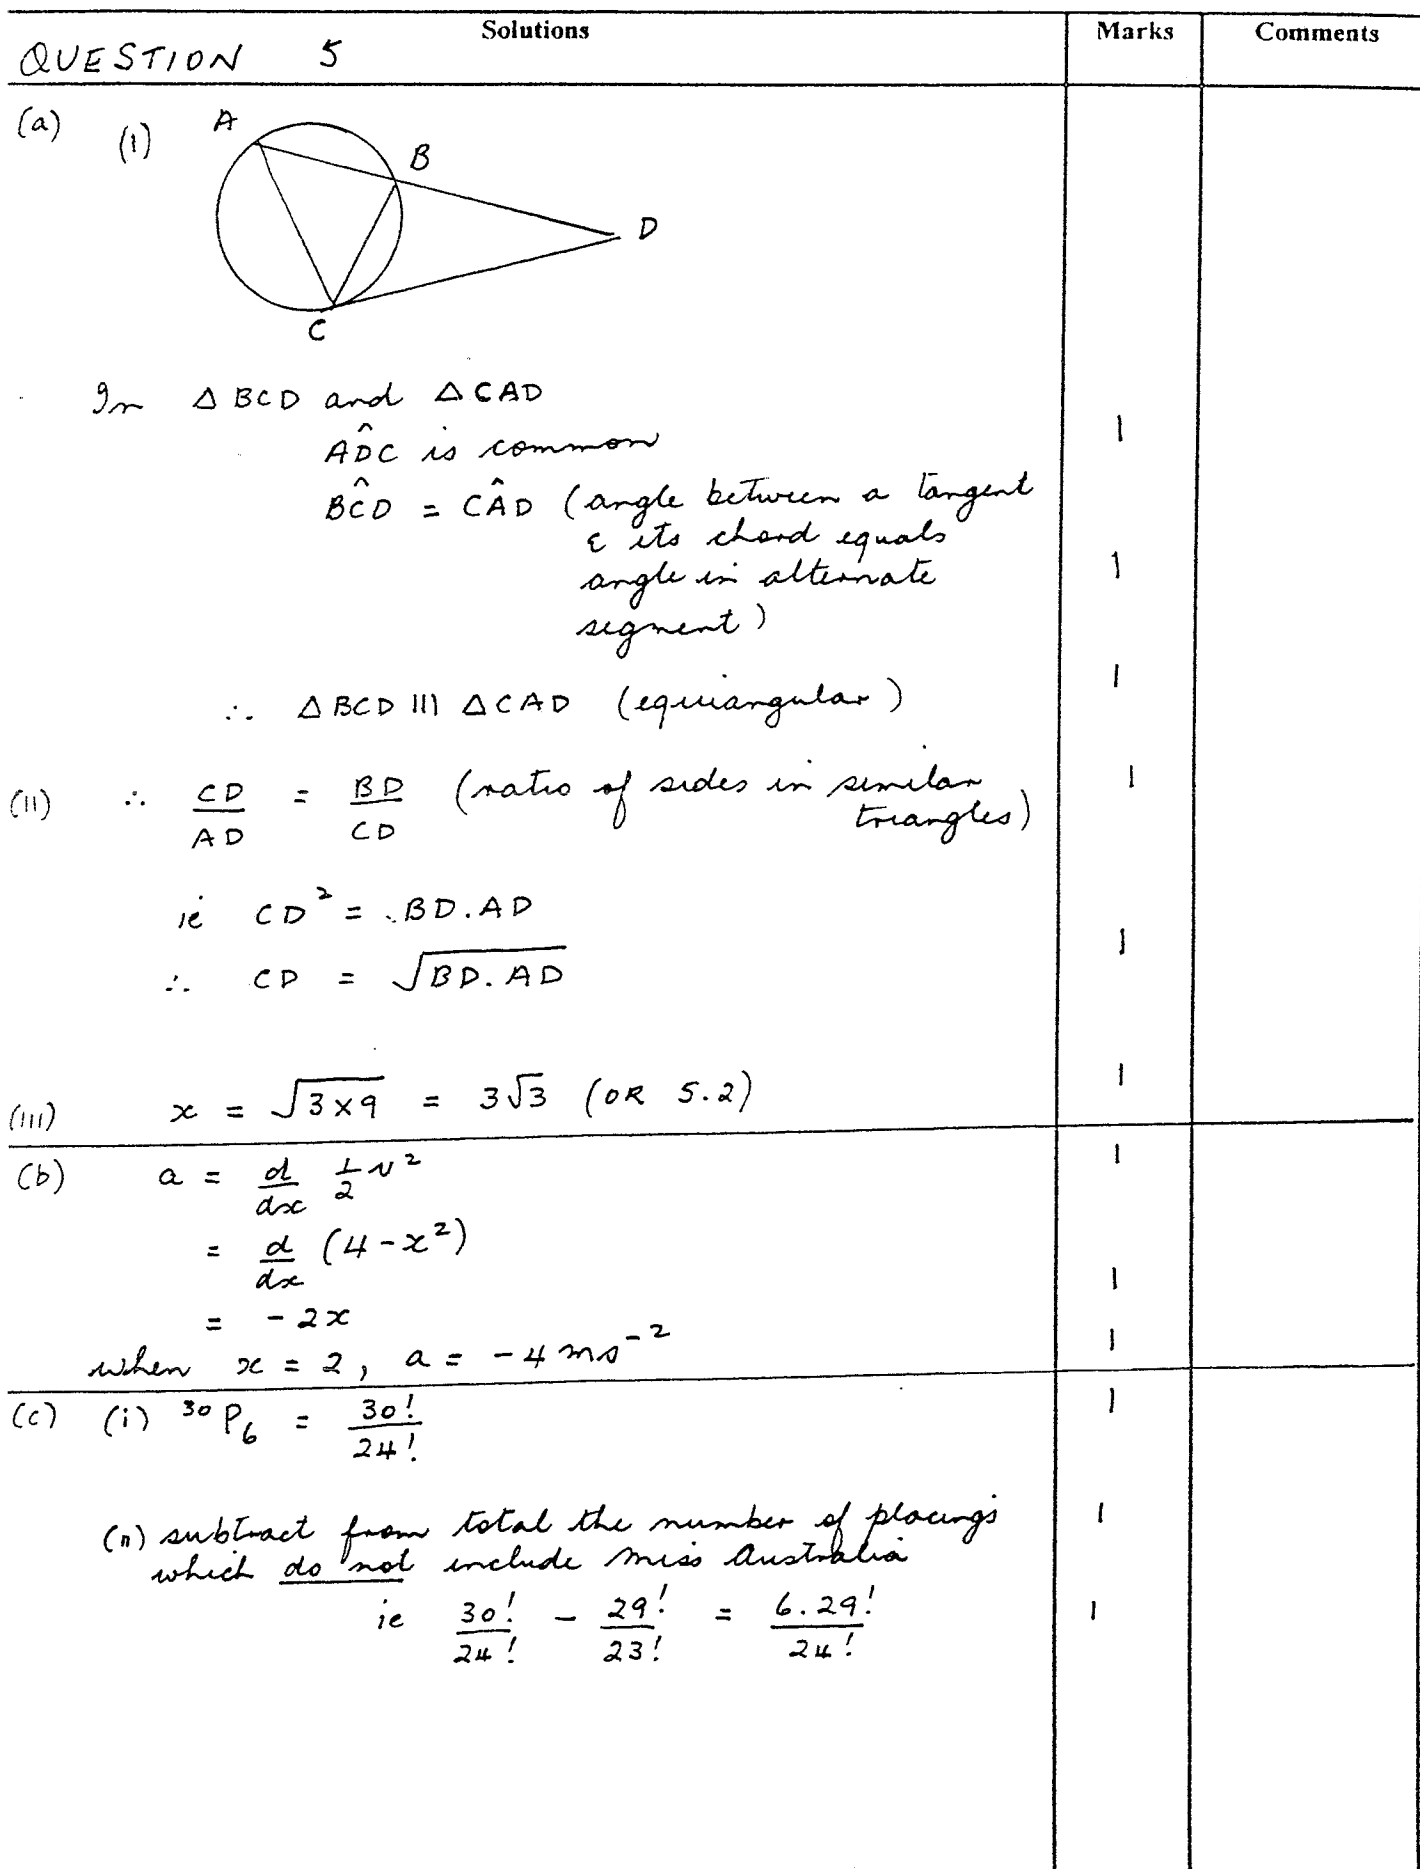 Solutions Marks Comments
QUESTION 5
(a) (1) A
B
D
C
In Δ BCD and Δ CAD
AD̂C is common 1
BĈD = CÂD (angle between a tangent
& its chord equals
angle in alternate 1
segment)
∴ Δ BCD ||| Δ CAD (equiangular) 1
(11) ∴ CD/AD = BD/CD (ratio of sides in similar 1
triangles)
ie CD² = BD.AD
∴ CD = √BD.AD 1
(111) x = √3×9 = 3√3 (OR 5.2) 1
(b) a = d/dx ½v² 1
= d/dx (4-x²)
= -2x 1
when x = 2, a = -4 ms⁻² 1
(c) (i) ³⁰P₆ = 30!/24! 1
(11) subtract from total the number of placings 1
which do not include Miss Australia
ie 30!/24! - 29!/23! = 6.29!/24! 1